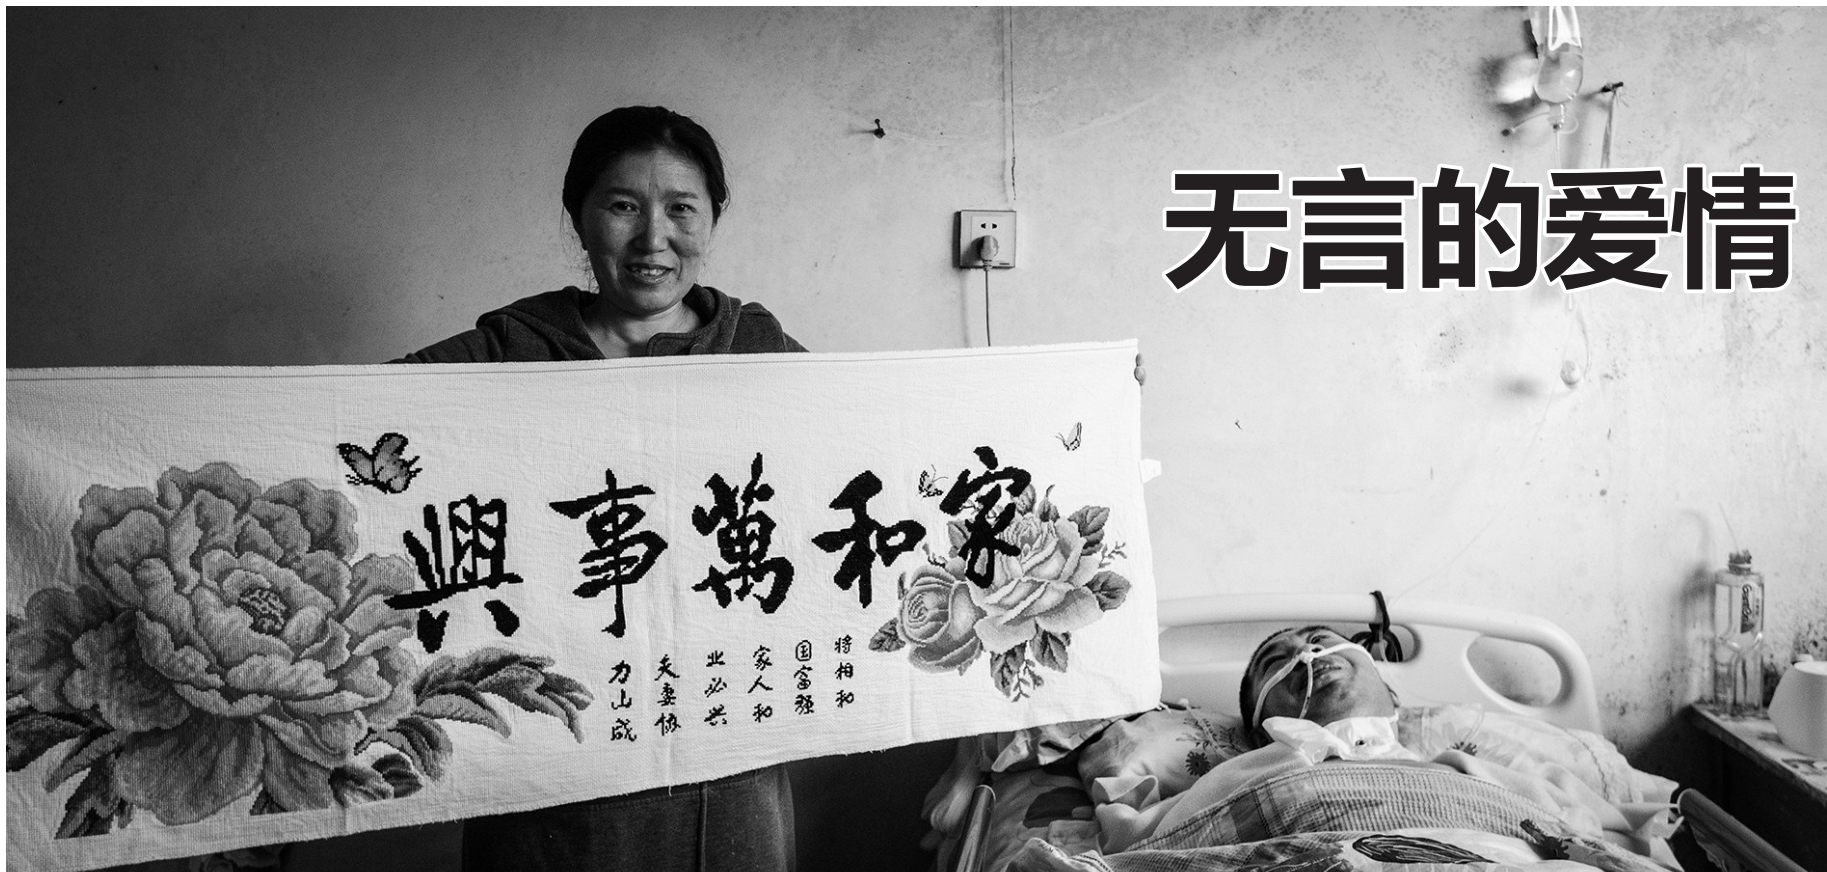 无言的爱情
家和萬事興
将相和
国富强
家人和
业必兴
夫妻协
力山成